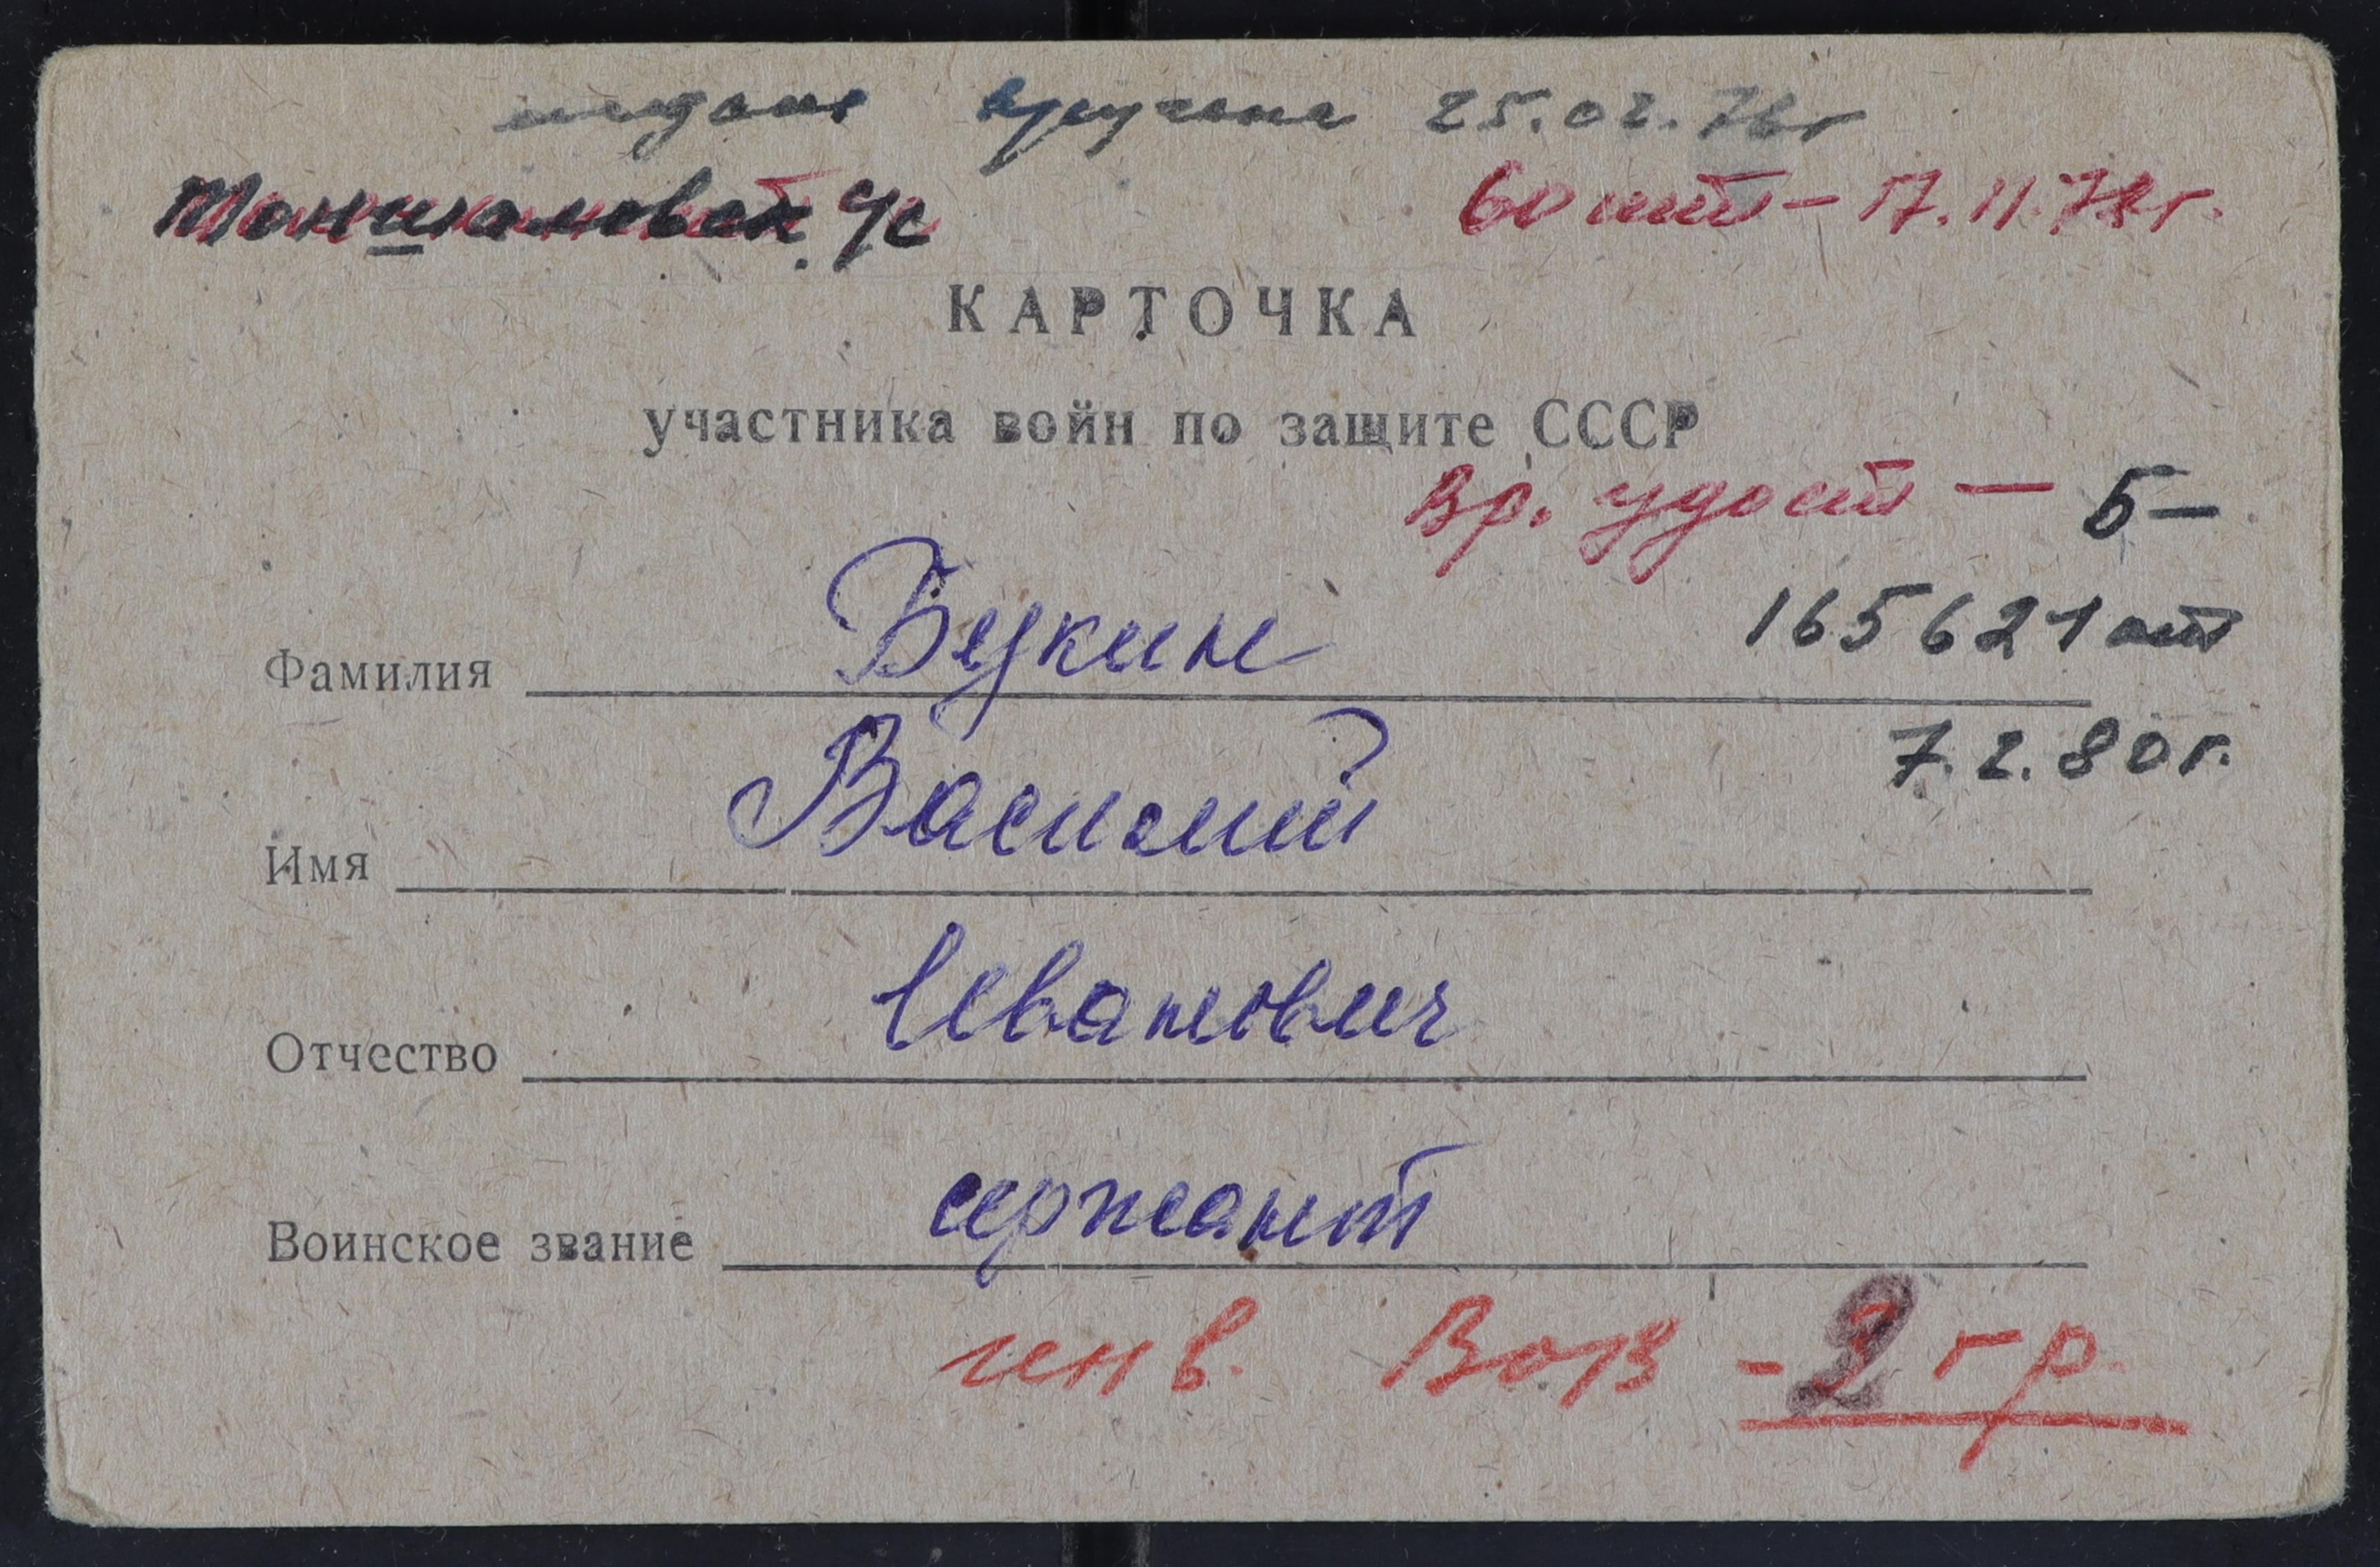 медаль вручена 25.02.76г
Тоншаловский с/с
60 лет – 17.11.78г.
КАРТОЧКА
участника войн по защите СССР
Вр. удост – Б–
165621 от
7.2.80г.
Фамилия Букин
Имя Василий
Отчество Иванович
Воинское звание сержант
инв. ВОВ - 2 гр.